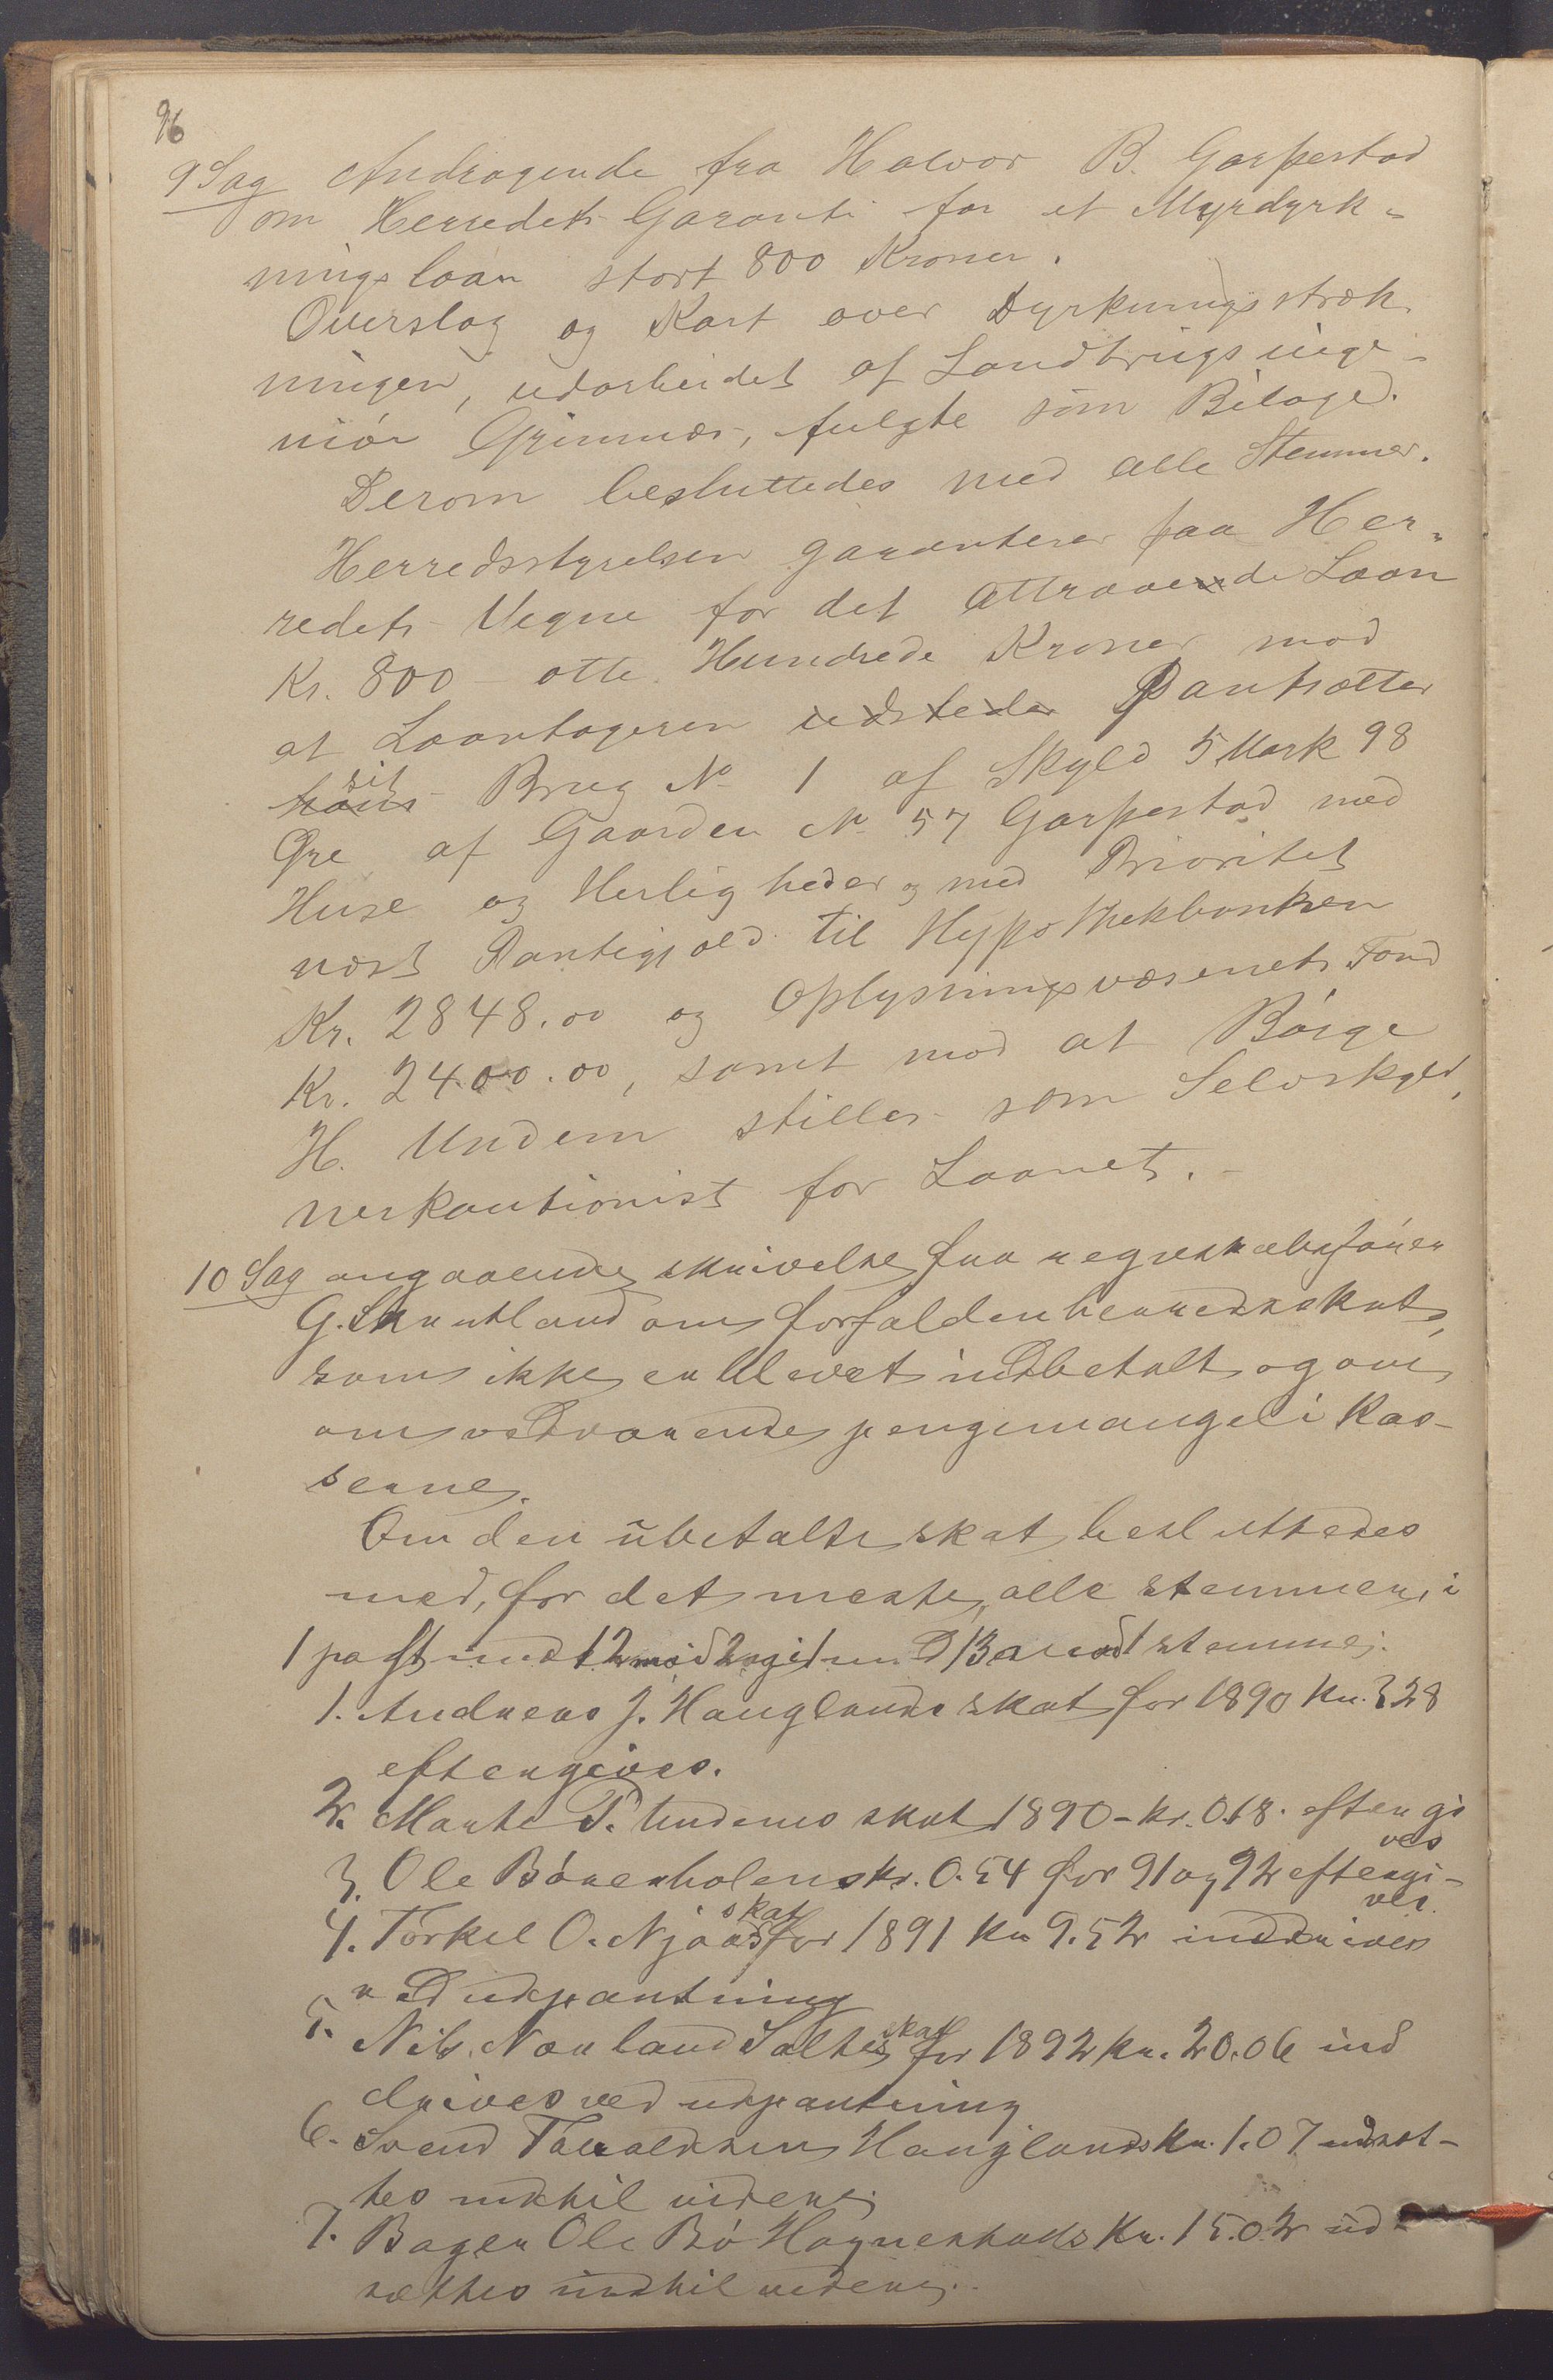 96
9 Sag Andragende fra Halvor B. Garpestad
om Herredets Garanti for et Myrdyrk-
ningslaan stort 800 Kroner.
Overslag og Kart over Dyrkningsstræk
ningen, udarbeidet af Landbrugsinge-
niör Grimnes, fulgte som Bilage.
Derom besluttedes med alle Stemmer.
Herredsstyrelsen garanterer paa Her-
redets Vegne for det attraaede Laan
Kr. 800 - otte Hundrede Kroner mod
at Laantageren udsteder Pantsætter
hans sit Brug No 1 af Skyld 5 Mark 98
Øre af Gaarden No 57 Garpestad med
Huse og Herligheder og med Prioritet
næst Pantegjæld til Hypothekbanken
Kr. 2848.00 og Oplysningsvæsenets Fond
Kr. 2400.00, samt mod at Börge
H. Undem stiller som Selvskyld,
nerkautionist for Laanet. -
10 Sag angaaende skrivelse fra regnskabsförer
G. Skrutland om forfalden herredsskat,
som ikke er blevet indbetalt og om
om vedvarende pengemangel i Kas-
serne.
Om den ubetalte skat besluttedes
med, for det meste, alle stemmer, i
1 post med 12 mod 2 og i 1 med 13 mod 1 stemme.
1. Andreas J. Hauglands skat for 1890 kr. 3.28
eftergives.
2. Marte P. Undems skat 1890 - kr. 0.18. eftergi
ves
3. Ole Börenholens kr. 0.54 for 91 og 92 eftergi-
ves.
4. Torkel O. Njaas skat for 1891 kr 9.52 inddrives
ved udpantning
5. Nils Nærland Saltes skat for 1892 kr. 20.06 ind
drives ved udpantning
6. Svend Taraldsen Hauglands kr. 1.07 udsæt-
tes indtil videre.
7. Bager Ole Bö Högnerstads kr. 15.02 ud-
sættes indtil videre.